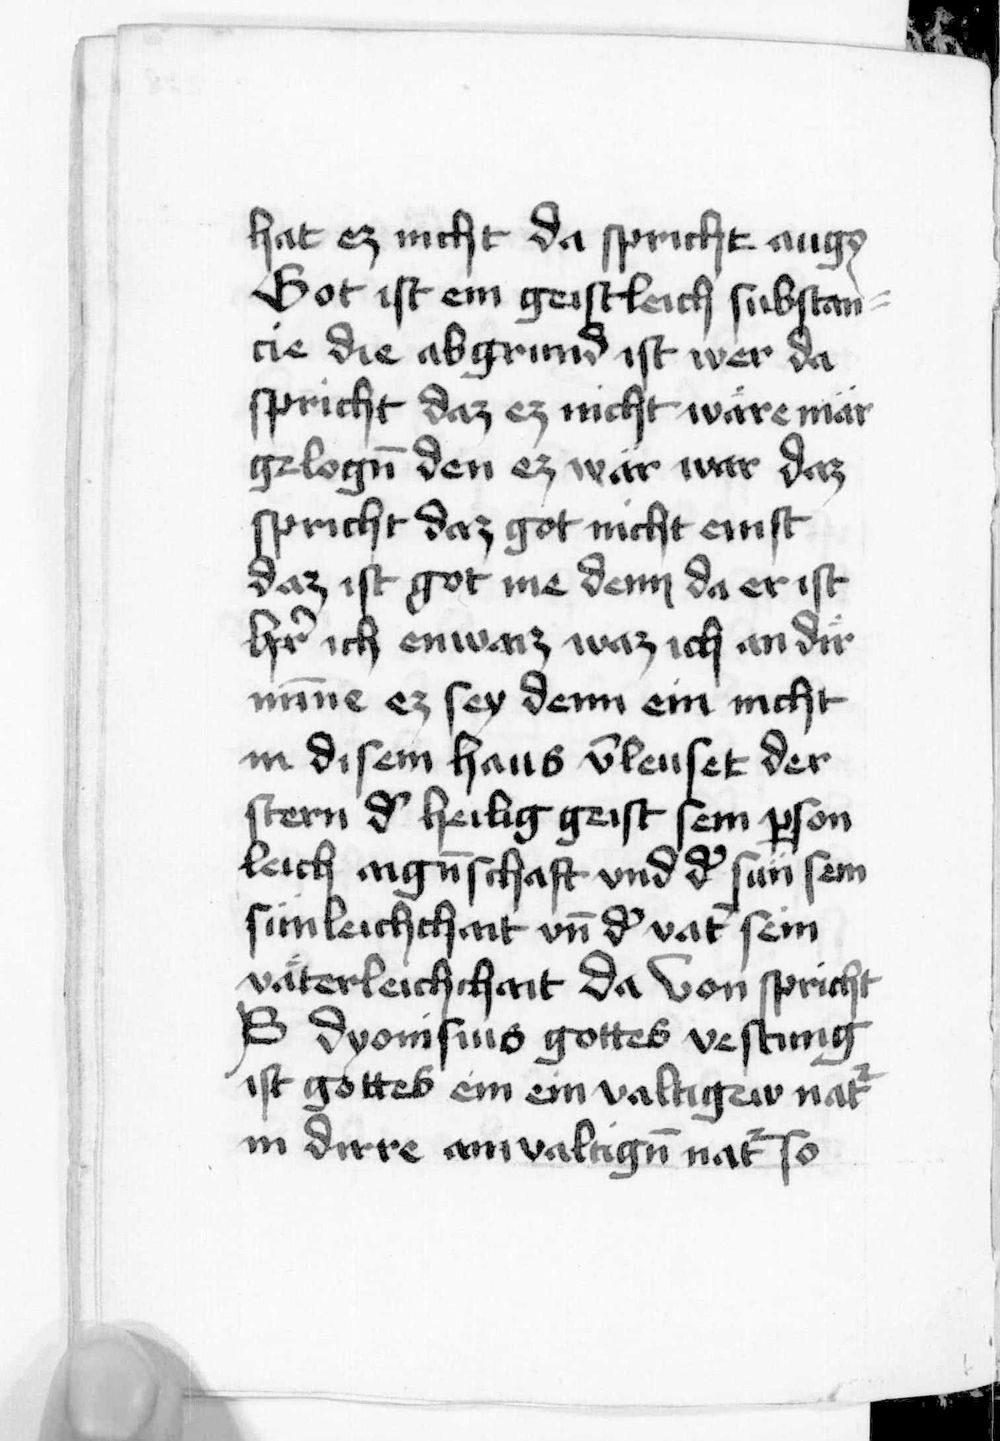 hat ez nicht da spricht aug9
Got ist ein geistleich substan=
cie die abgrund ist wer da
spricht daz ez nicht wäre mär
gelogn̄ den ez wär war daz
spricht daz got nicht enist
daz ist got me denn da er ist
hr̄ ich enwaiz waz ich an dir
mīne ez sey denn ein nicht
in disem haus v̄leuset der
stern d' heilig geist sein ꝑson
leich aign̄schaft vnd d' sun sein
sünleichchait vn̄ d' vat' sein
väterleichchait Da von spricht
S dyonisius gottes vestung
ist gottes ein ein valtigew nat2
in dirre ainvaltign̄ nat2 so